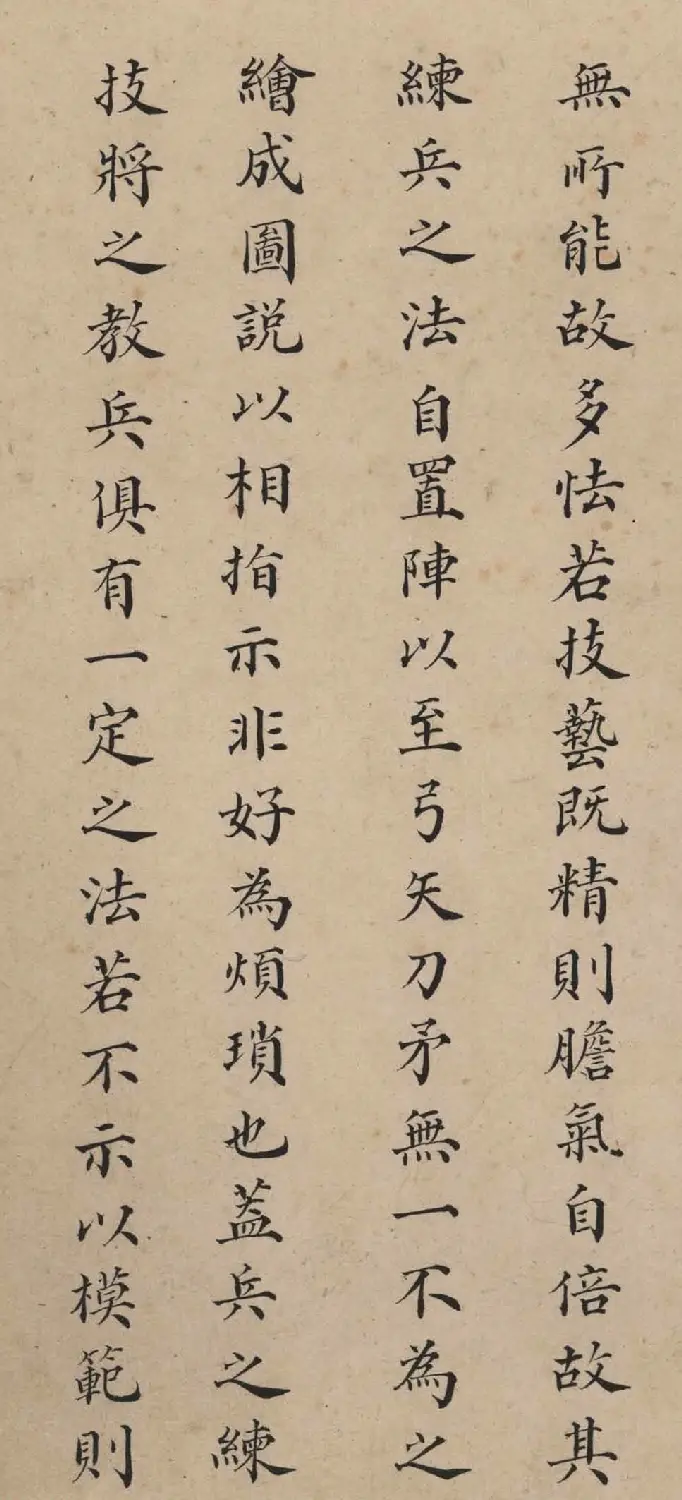 無所能故多怯若技藝既精則膽氣自倍故其
練兵之法自置陣以至弓矢刀矛無一不為之
繪成圖説以相指示非好為煩瑣也葢兵之練
技將之教兵俱有一定之法若不示以模範則